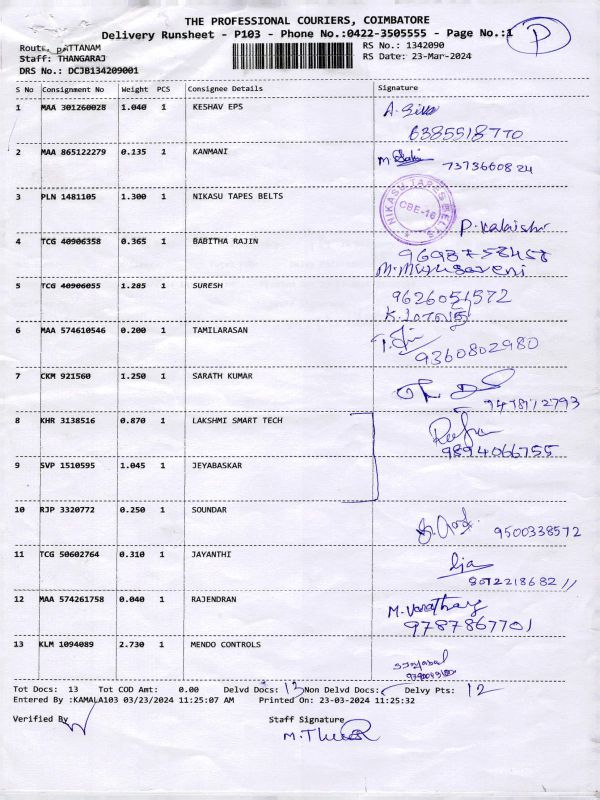 THE PROFESSIONAL COURIERS, COIMBATORE
Delivery Runsheet - P103 - Phone No.:0422-3505555 - Page No.:1
P
Route: PATTANAM
RS No.: 1342090
Staff: THANGARAJ
RS Date: 23-Mar-2024
DRS No.: DCJB134209001
S No Consignment No Weight PCS Consignee Details Signature
1 MAA 301260028 1.040 1 KESHAV EPS
6385518770
2 MAA 865122279 0.135 1 KANMANI
7373660824
3 PLN 1481105 1.300 1 NIKASU TAPES BELTS
NIKASU TAPES BELTS
CBE-16
4 TCG 40906358 0.365 1 BABITHA RAJIN
5 TCG 40906055 1.285 1 SURESH
9626051572
6 MAA 574610546 0.200 1 TAMILARASAN
9360802980
7 CKM 921560 1.250 1 SARATH KUMAR
8 KHR 3138516 0.870 1 LAKSHMI SMART TECH
9894066755
9 SVP 1510595 1.045 1 JEYABASKAR
10 RJP 3320772 0.250 1 SOUNDAR
9500338572
11 TCG 50602764 0.310 1 JAYANTHI
12 MAA 574261758 0.040 1 RAJENDRAN
9787867701
13 KLM 1094089 2.730 1 MENDO CONTROLS
Tot Docs: 13 Tot COD Amt: 0.00 Delvd Docs: 13 Non Delvd Docs: Delvy Pts: 12
Entered By :KAMALA103 03/23/2024 11:25:07 AM Printed On: 23-03-2024 11:25:32
Verified By Staff Signature